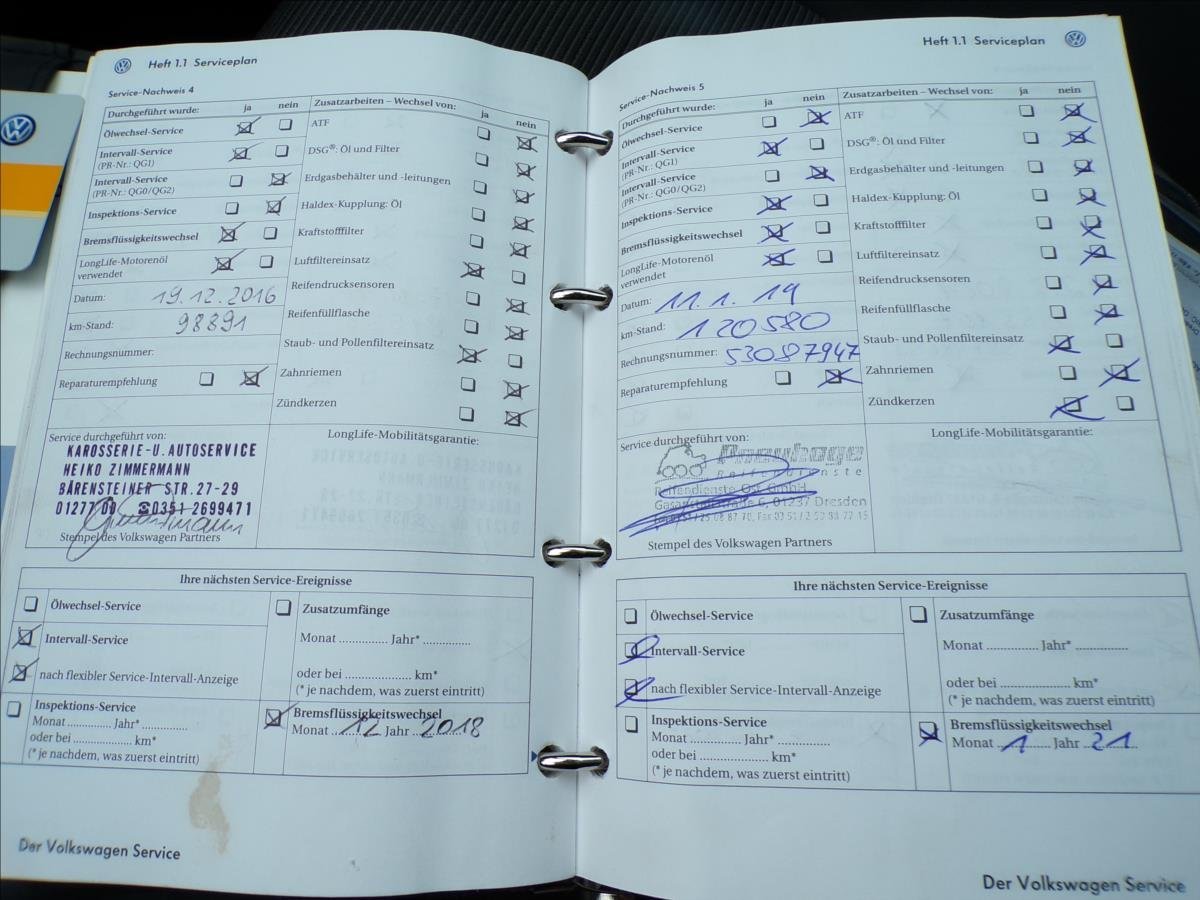 Heft 1.1 Serviceplan
Service-Nachweis 4
Durchgeführt wurde: ja nein
Ölwechsel-Service
Intervall-Service
(PR-Nr.: QG1)
Intervall-Service
(PR-Nr.: QG0/QG2)
Inspektions-Service
Bremsflüssigkeitswechsel
LongLife-Motorenöl
verwendet
Datum: 19.12.2016
km-Stand: 98891
Rechnungsnummer:
Reparaturempfehlung
Zusatzarbeiten – Wechsel von: ja nein
ATF
DSG®: Öl und Filter
Erdgasbehälter und -leitungen
Haldex-Kupplung: Öl
Kraftstofffilter
Luftfiltereinsatz
Reifendrucksensoren
Reifenfüllflasche
Staub- und Pollenfiltereinsatz
Zahnriemen
Zündkerzen
Service durchgeführt von:
KAROSSERIE-U. AUTOSERVICE
HEIKO ZIMMERMANN
BÄRENSTEINER STR. 27-29
01277 DD ☎0351 2699471
Stempel des Volkswagen Partners
LongLife-Mobilitätsgarantie:
Ihre nächsten Service-Ereignisse
Ölwechsel-Service
Intervall-Service
nach flexibler Service-Intervall-Anzeige
Inspektions-Service
Monat ............ Jahr* ............
oder bei ............ km*
(* je nachdem, was zuerst eintritt)
Zusatzumfänge
Monat ............ Jahr* ............
oder bei ............ km*
(* je nachdem, was zuerst eintritt)
Bremsflüssigkeitswechsel
Monat 12 Jahr 2018
Der Volkswagen Service
Heft 1.1 Serviceplan
Service-Nachweis 5
Durchgeführt wurde: ja nein
Ölwechsel-Service
Intervall-Service
(PR-Nr.: QG1)
Intervall-Service
(PR-Nr.: QG0/QG2)
Inspektions-Service
Bremsflüssigkeitswechsel
LongLife-Motorenöl
verwendet
Datum: 11.1.19
km-Stand: 120580
Rechnungsnummer: 53087947
Reparaturempfehlung
Zusatzarbeiten – Wechsel von: ja nein
ATF
DSG®: Öl und Filter
Erdgasbehälter und -leitungen
Haldex-Kupplung: Öl
Kraftstofffilter
Luftfiltereinsatz
Reifendrucksensoren
Reifenfüllflasche
Staub- und Pollenfiltereinsatz
Zahnriemen
Zündkerzen
Service durchgeführt von:
Reifendienste
Reifendienste Ost GmbH
6, 01237 Dresden
Stempel des Volkswagen Partners
LongLife-Mobilitätsgarantie:
Ihre nächsten Service-Ereignisse
Ölwechsel-Service
Intervall-Service
nach flexibler Service-Intervall-Anzeige
Inspektions-Service
Monat ............ Jahr* ............
oder bei ............ km*
(* je nachdem, was zuerst eintritt)
Zusatzumfänge
Monat ............ Jahr* ............
oder bei ............ km*
(* je nachdem, was zuerst eintritt)
Bremsflüssigkeitswechsel
Monat 1 Jahr 21
Der Volkswagen Service